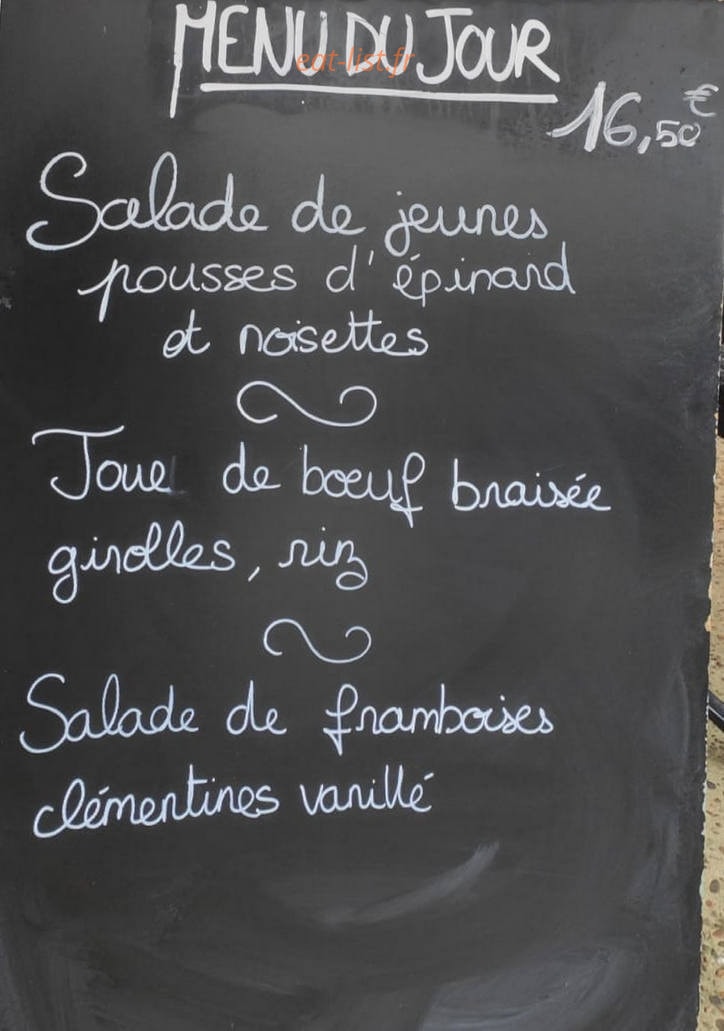 MENU DU JOUR
eat-list.fr
16,50€
Salade de jeunes
pousses d'épinard
et noisettes
Joue de bœuf braisée
girolles, riz
Salade de framboises
clémentines vanillé